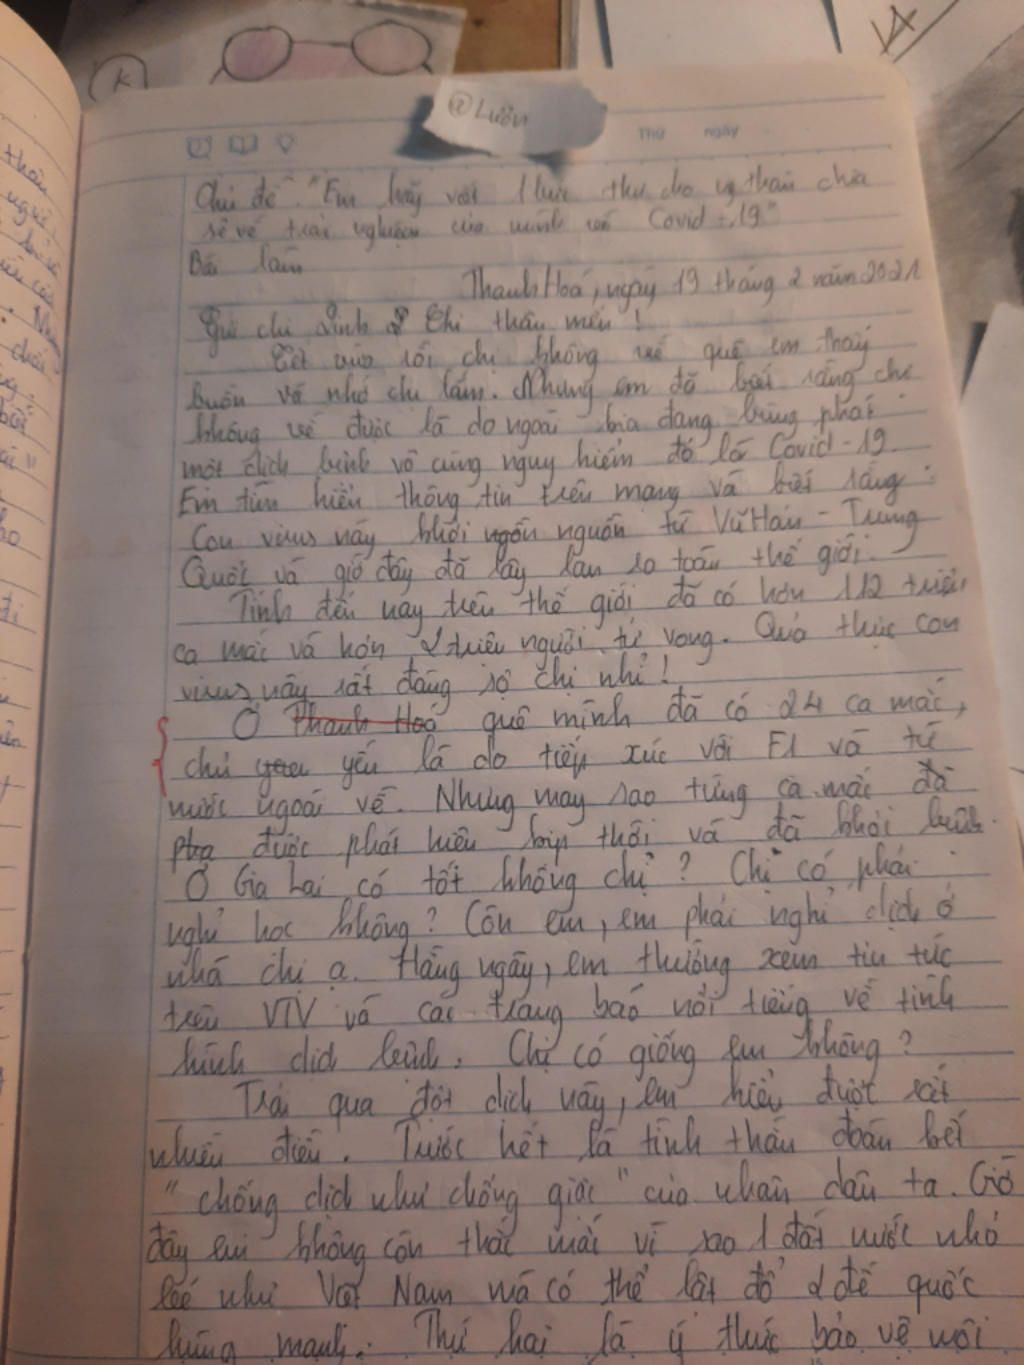 K
@Luôn
Thứ ngày
Chủ đề: "Em hãy viết 1 bức thư cho người thân chia
sẻ về trải nghiệm của mình về Covid-19"
Bài làm
Thanh Hoá, ngày 19 tháng 2 năm 2021
Gửi chị Linh Chị thân mến!
Tết vừa rồi, chị không về quê em thấy
buồn và nhớ chị lắm. Nhưng em đã biết rằng chị
không về được là do ngoài kia đang bùng phát
một dịch bệnh vô cùng nguy hiểm đó là Covid-19.
Em tìm hiểu thông tin trên mạng và biết rằng:
Con virus này khởi ngốn nguồn từ Vũ Hán - Trung
Quốc và giờ đây đã lây lan ra toàn thế giới.
Tính đến nay trên thế giới đã có hơn 112 triệu
ca mắc và hơn 2 triệu người tử vong. Quả thực con
virus này rất đáng sợ chị nhỉ!
Ở Thanh Hoá quê mình đã có 24 ca mắc,
chủ yếu là do tiếp xúc với F1 và từ
nước ngoài về. Nhưng may sao từng ca mắc đã
được phát hiện kịp thời và đã khỏi bệnh.
Ở Gia Lai có tốt không chị? Chị có phải
nghỉ học không? Còn em, em phải nghỉ dịch ở
nhà chị ạ. Hằng ngày, em thường xem tin tức
trên VTV và các trang báo nổi tiếng về tình
hình dịch bệnh. Chị có giống em không?
Trải qua đợt dịch này, em hiểu được rất
nhiều điều. Trước hết là tinh thần đoàn kết
"chống dịch như chống giặc" của nhân dân ta. Giờ
đây em không còn thắc mắc vì sao 1 đất nước nhỏ
bé như Việt Nam mà có thể lật đổ 2 đế quốc
hùng mạnh. Thứ hai là ý thức bảo vệ môi